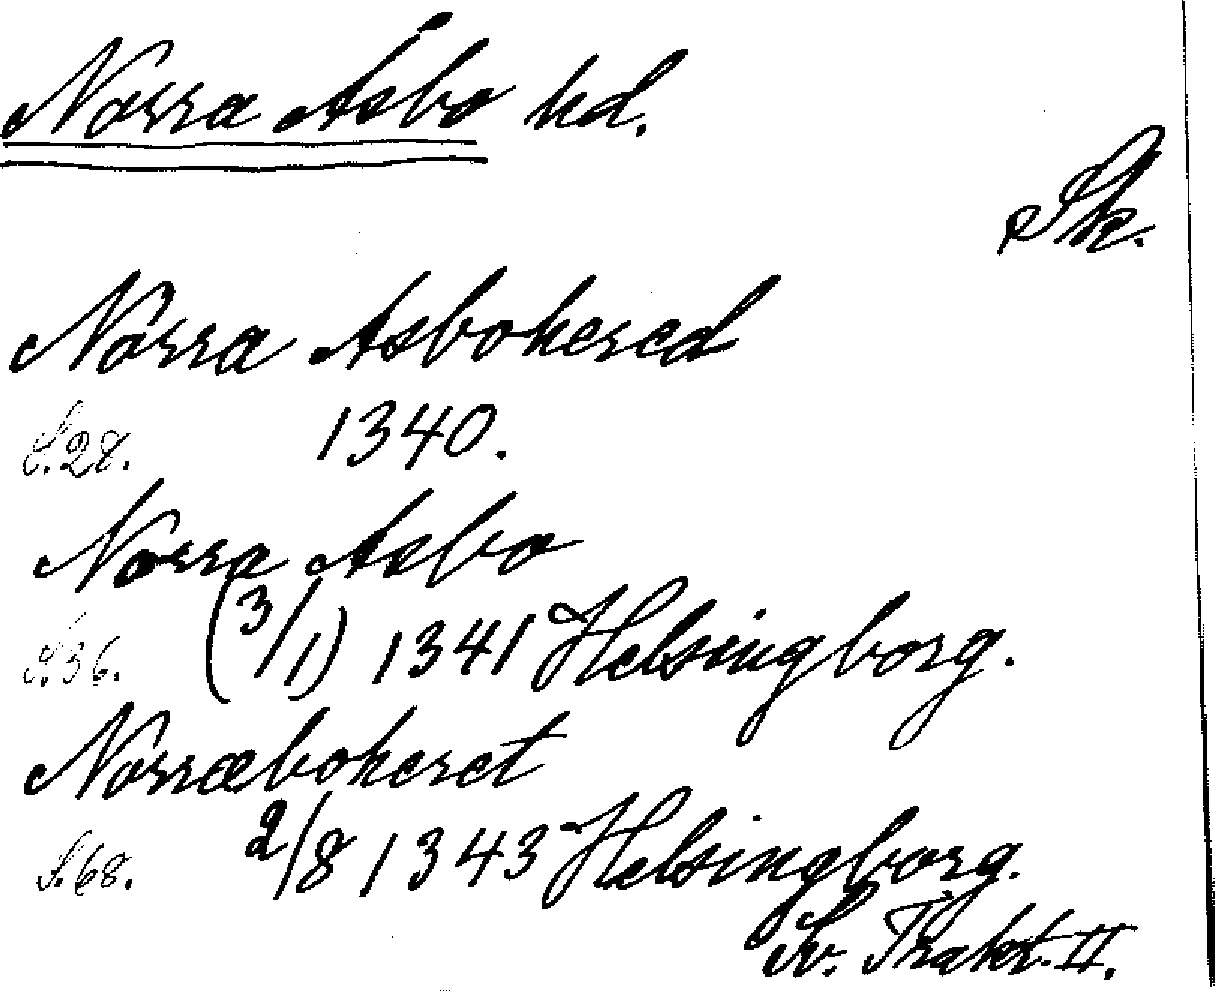 Norra Åsbo hd.
Sk.
Norra Asbohered
S. 28. 1340.
Norra Asbo
S. 36. (3/1) 1341 Helsingborg.
Norræboheret
S. 68. 2/8 1343 Helsingborg.
Sv. Trakt. II.